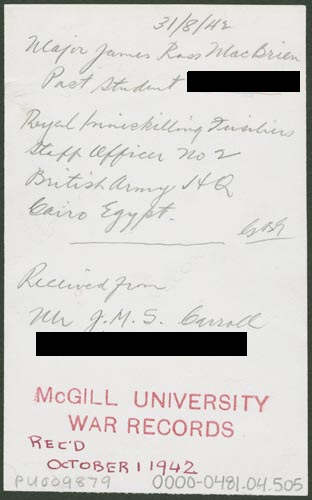 31/8/42
Major James Ross MacBrien
Past Student
Royal Inniskilling Fusiliers
Staff Officer No 2
British Army HQ
Cairo Egypt.
Received from
Mr J.M.S. Carroll
McGILL UNIVERSITY
WAR RECORDS
REC'D
OCTOBER 1 1942
PU009879
0000-0481.04.505